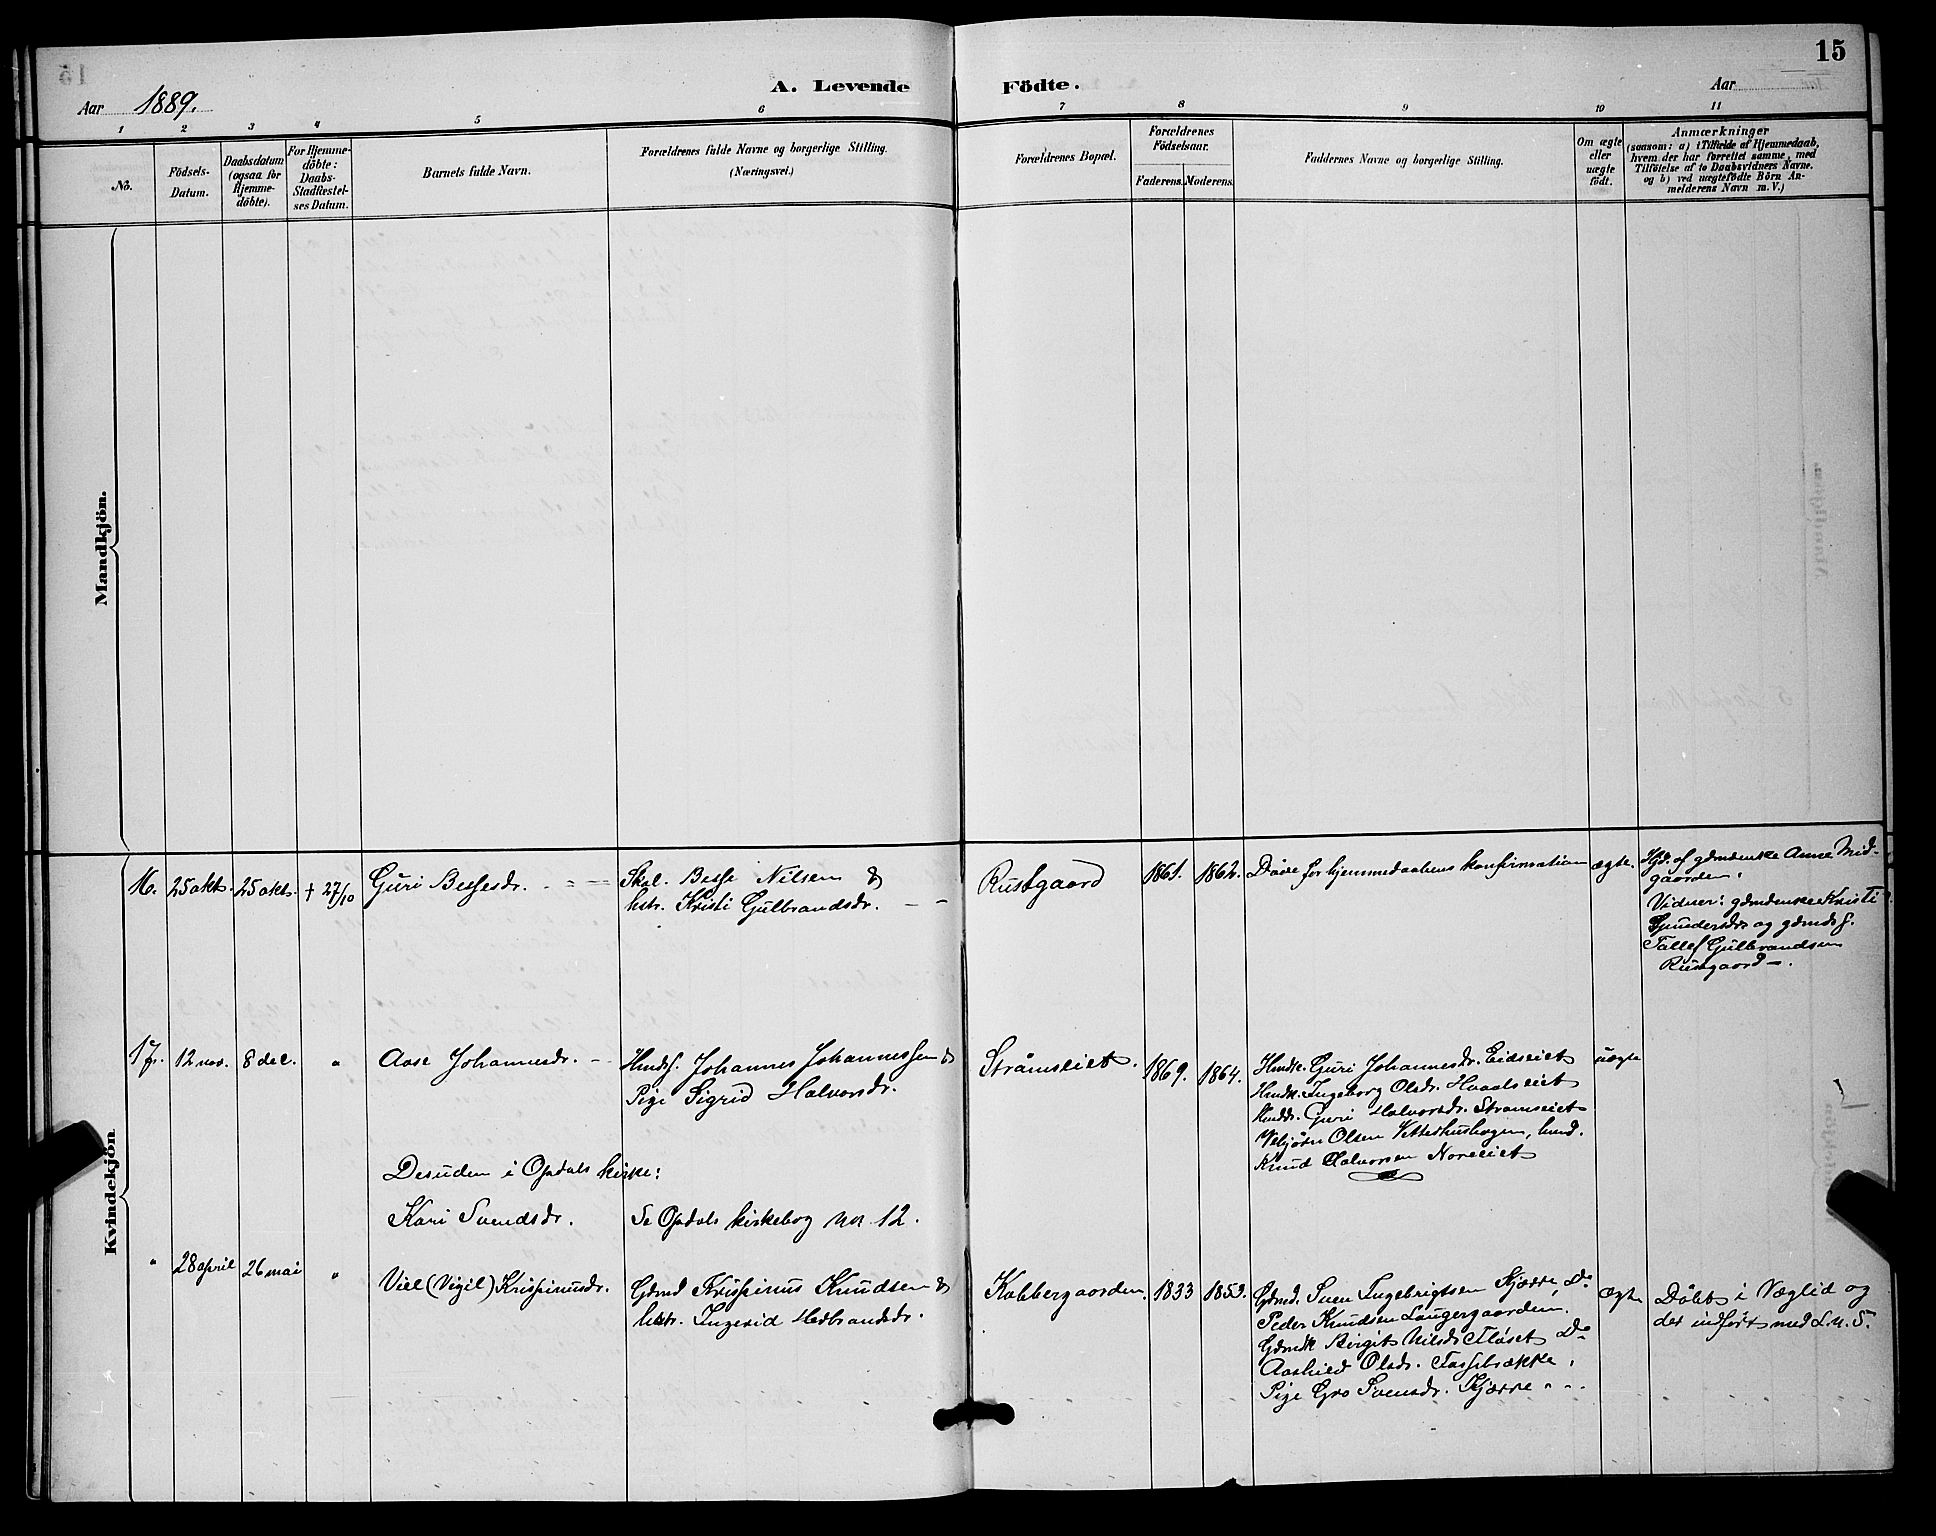 15
Aar 1889.
A. Levende Födte.
Aar
1 2 3 4 5 6 7 8 9 10 11
No.
Födsels-Datum.
Daabsdatum (ogsaa for Hjemme-döbte).
For Hjemme-döbte: Daabs-Stadfæstel-ses Datum.
Barnets fulde Navn.
Forældrenes fulde Navne og borgerlige Stilling.
(Næringsvei.)
Forældrenes Bopæl.
Forældrenes Födselsaar.
Faderens. Moderens.
Faddernes Navne og borgerlige Stilling.
Om ægte eller uægte födt.
Anmærkninger
(saasom: a) i Tilfælde af Hjemmedaab,
hvem der har forrettet samme, med
Tilföielse af to Daabsvidners Navne.
og b) ved uægtefödte Börn An-
melderens Navn m. V.)
Mandkjön.
Kvindekjön
16. 25 okt. 25 okt. † 27/10 Guri Bessesdr.
Skol. Besse Nilsen &
hstr. Kristi Gulbrandsdr.
Rustgaard 1861. 1862. Døde før hjemmedaabens konfirmation ægte.
Hjd. af gdmdenke Anne Mid-
gaarden.
Vidner: gdmdenke Kristi
Gundersdr. og gdmds f.
Tollef Gulbrandsen
Rustgaard
17. 12 nov. 8 dec. " Aase Johannesdr.
Hmds f. Johannes Johannessen &
Pige Sigrid Halvorsdr.
Strømseiet. 1869. 1864.
Hmdk. Guri Johannesdr. Eidseiet
Hmdk. Ingeborg Olsdr. Hvaalseiet
Hmdd. Guri Halvorsdr. Strømseiet
Vebjørn Olsen Vetterhushagen, hmd.
Knud Halvorsen Noreeiet
uægte
Desuden i Opdals kirke:
Kari Svendsdr. Se Opdals kirkebog no. 12.
" 28 april 26 mai " Viel (Vigil) Krispinusdr.
Gdmd Krispinus Knudsen &
hstr. Ingerid Herbrandsdr.
Kobbergaarden. 1833 1850.
Gdmd. Sven Ingebrigtsen Kjærre, Do
Peder Knudsen Langergaarden.
Gdmdk Birgit Nilsdr Fløset Do
Aashild Olsdr. Fossebrække,
Pige Gro Svensdr. Kjærre
Ægte
Döbt i Væglid og
der indført med L. n. 5.